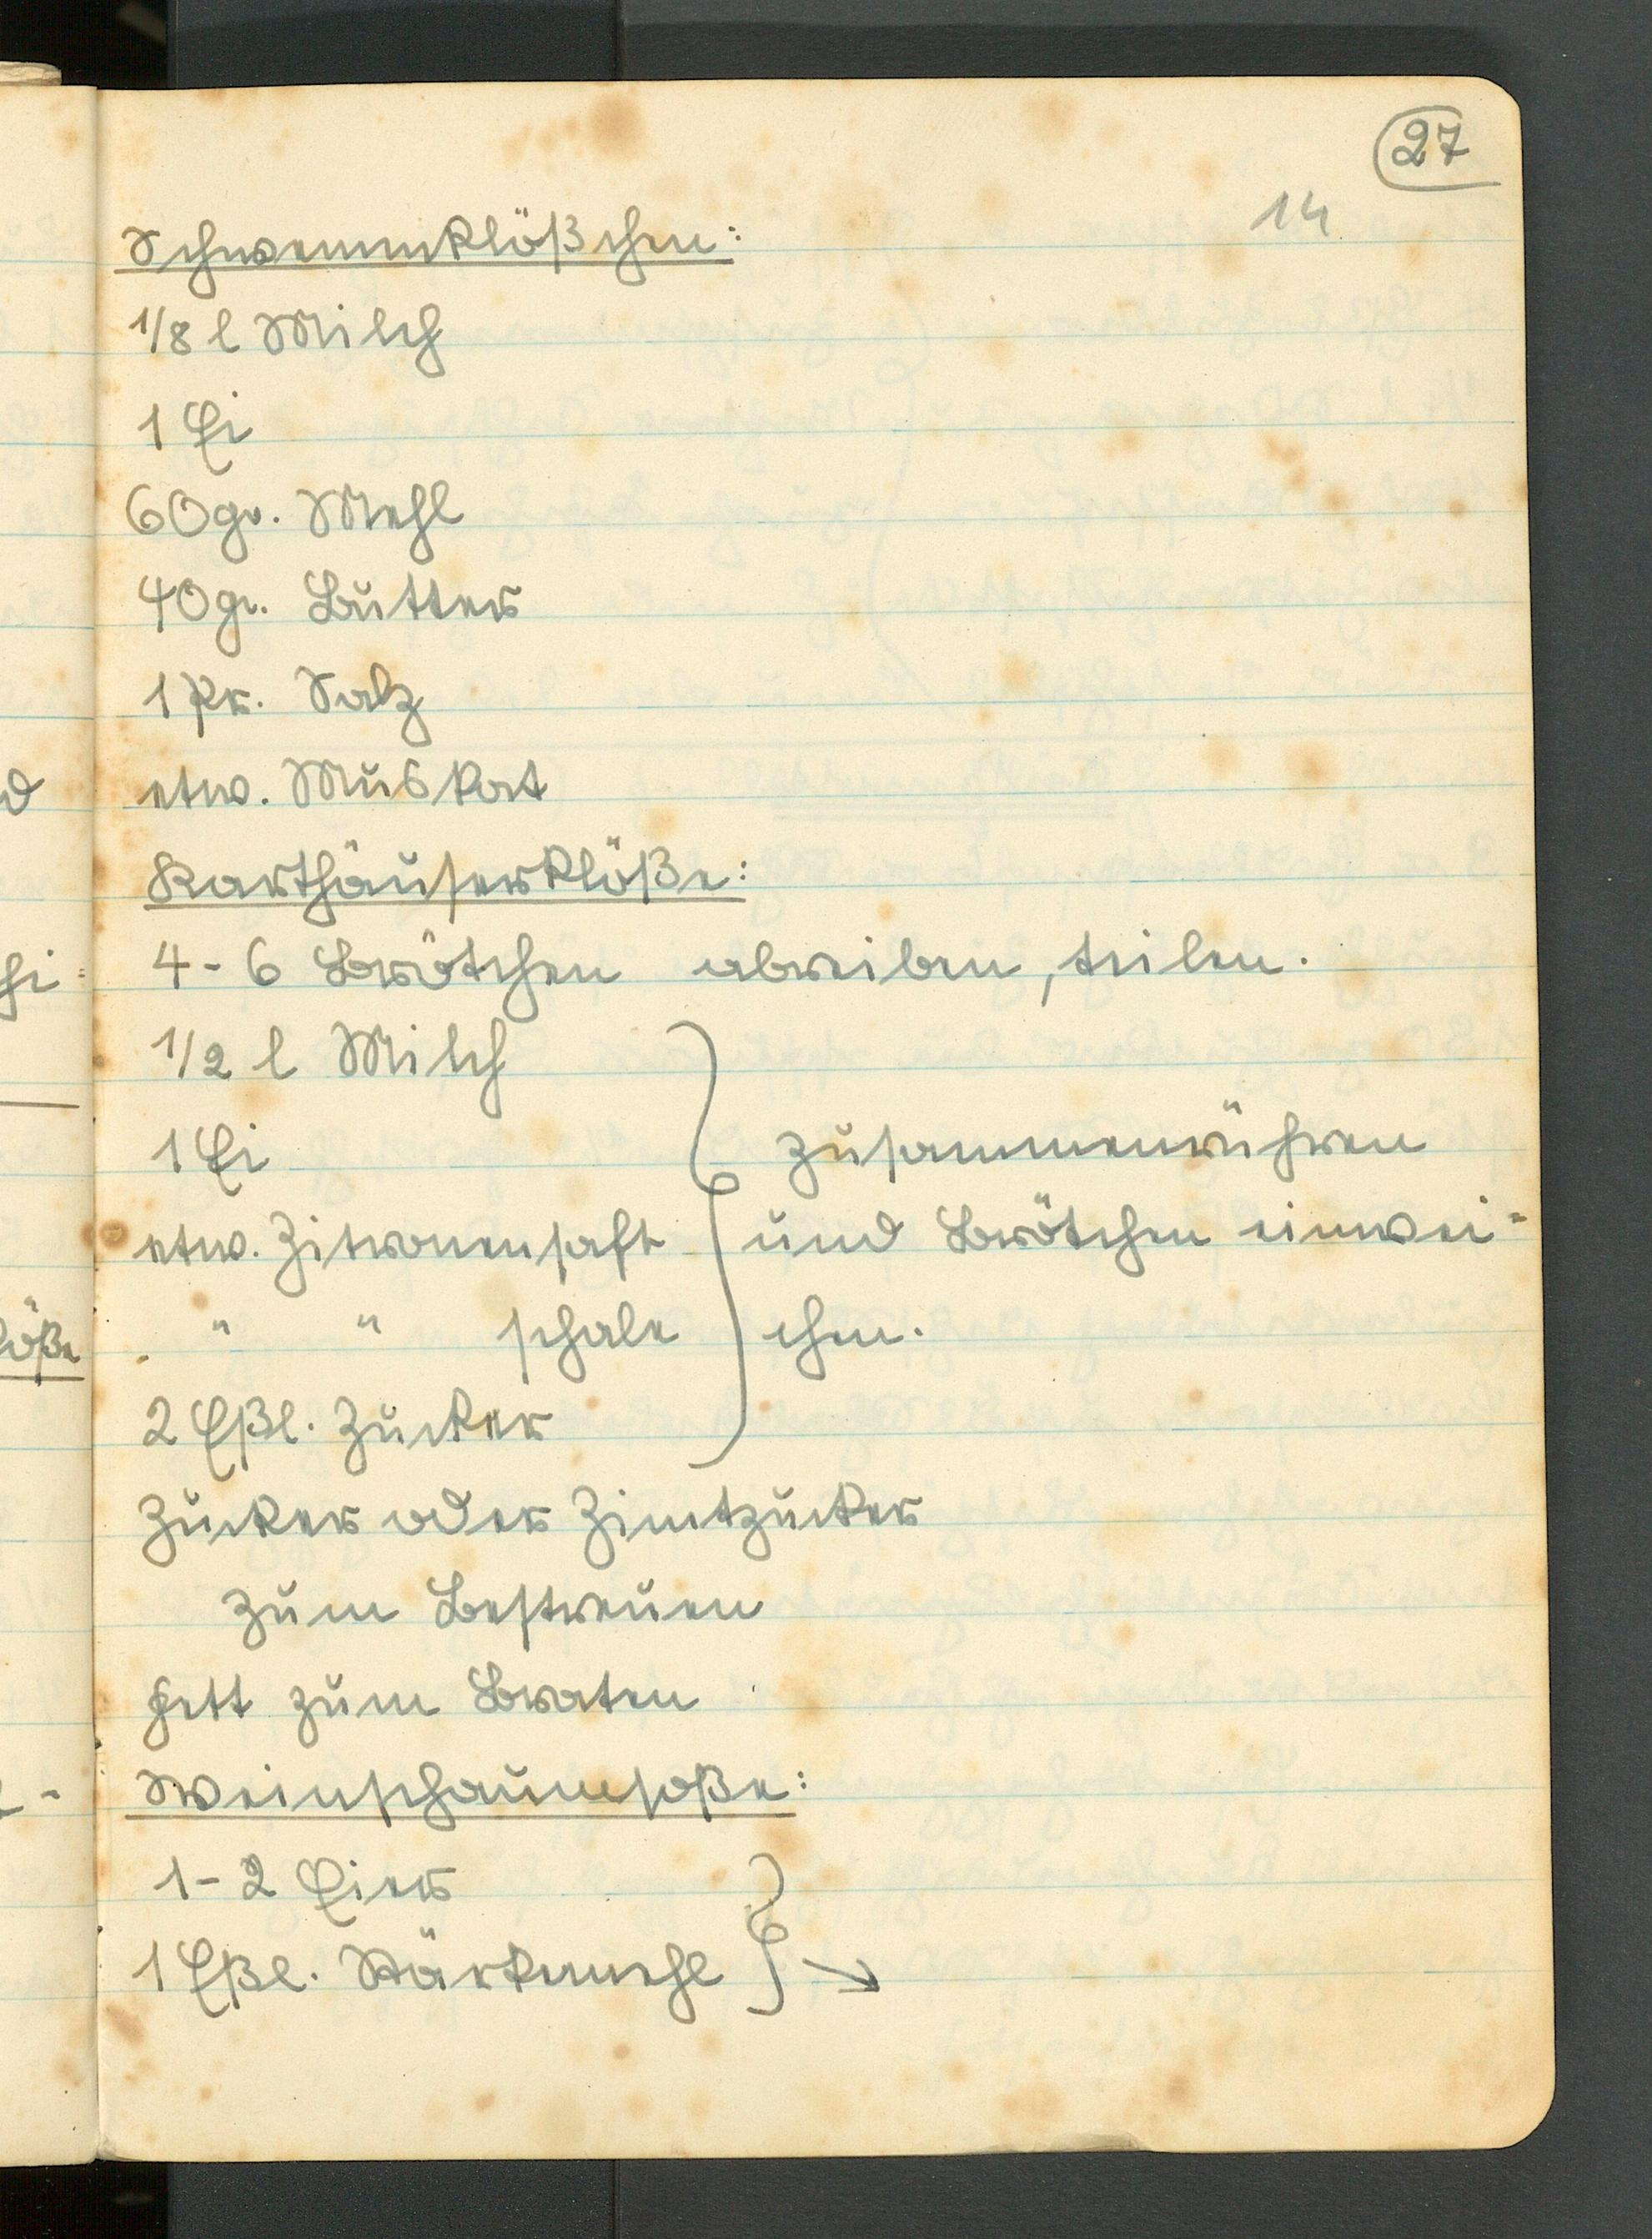 27
14
Schwemmklößchen:
1/8 l Milch
1 Ei
60 gr. Mehl
40 gr. Butter
1 Pr. Salz
etw. Muskat
Karthäuserklöße:
4-6 Brötchen abreiben, teilen.
1/2 l Milch
1 Ei } zusammenrühren
etw. Zitronensaft } und Brötchen einwei=
" " schale } chen.
2 Eßl. Zucker
Zucker oder Zimtzucker
zum Bestreuen
Fett zum Braten
Weinschaumsoße:
1-2 Eier
1 Eßl. Stärkemehl } →